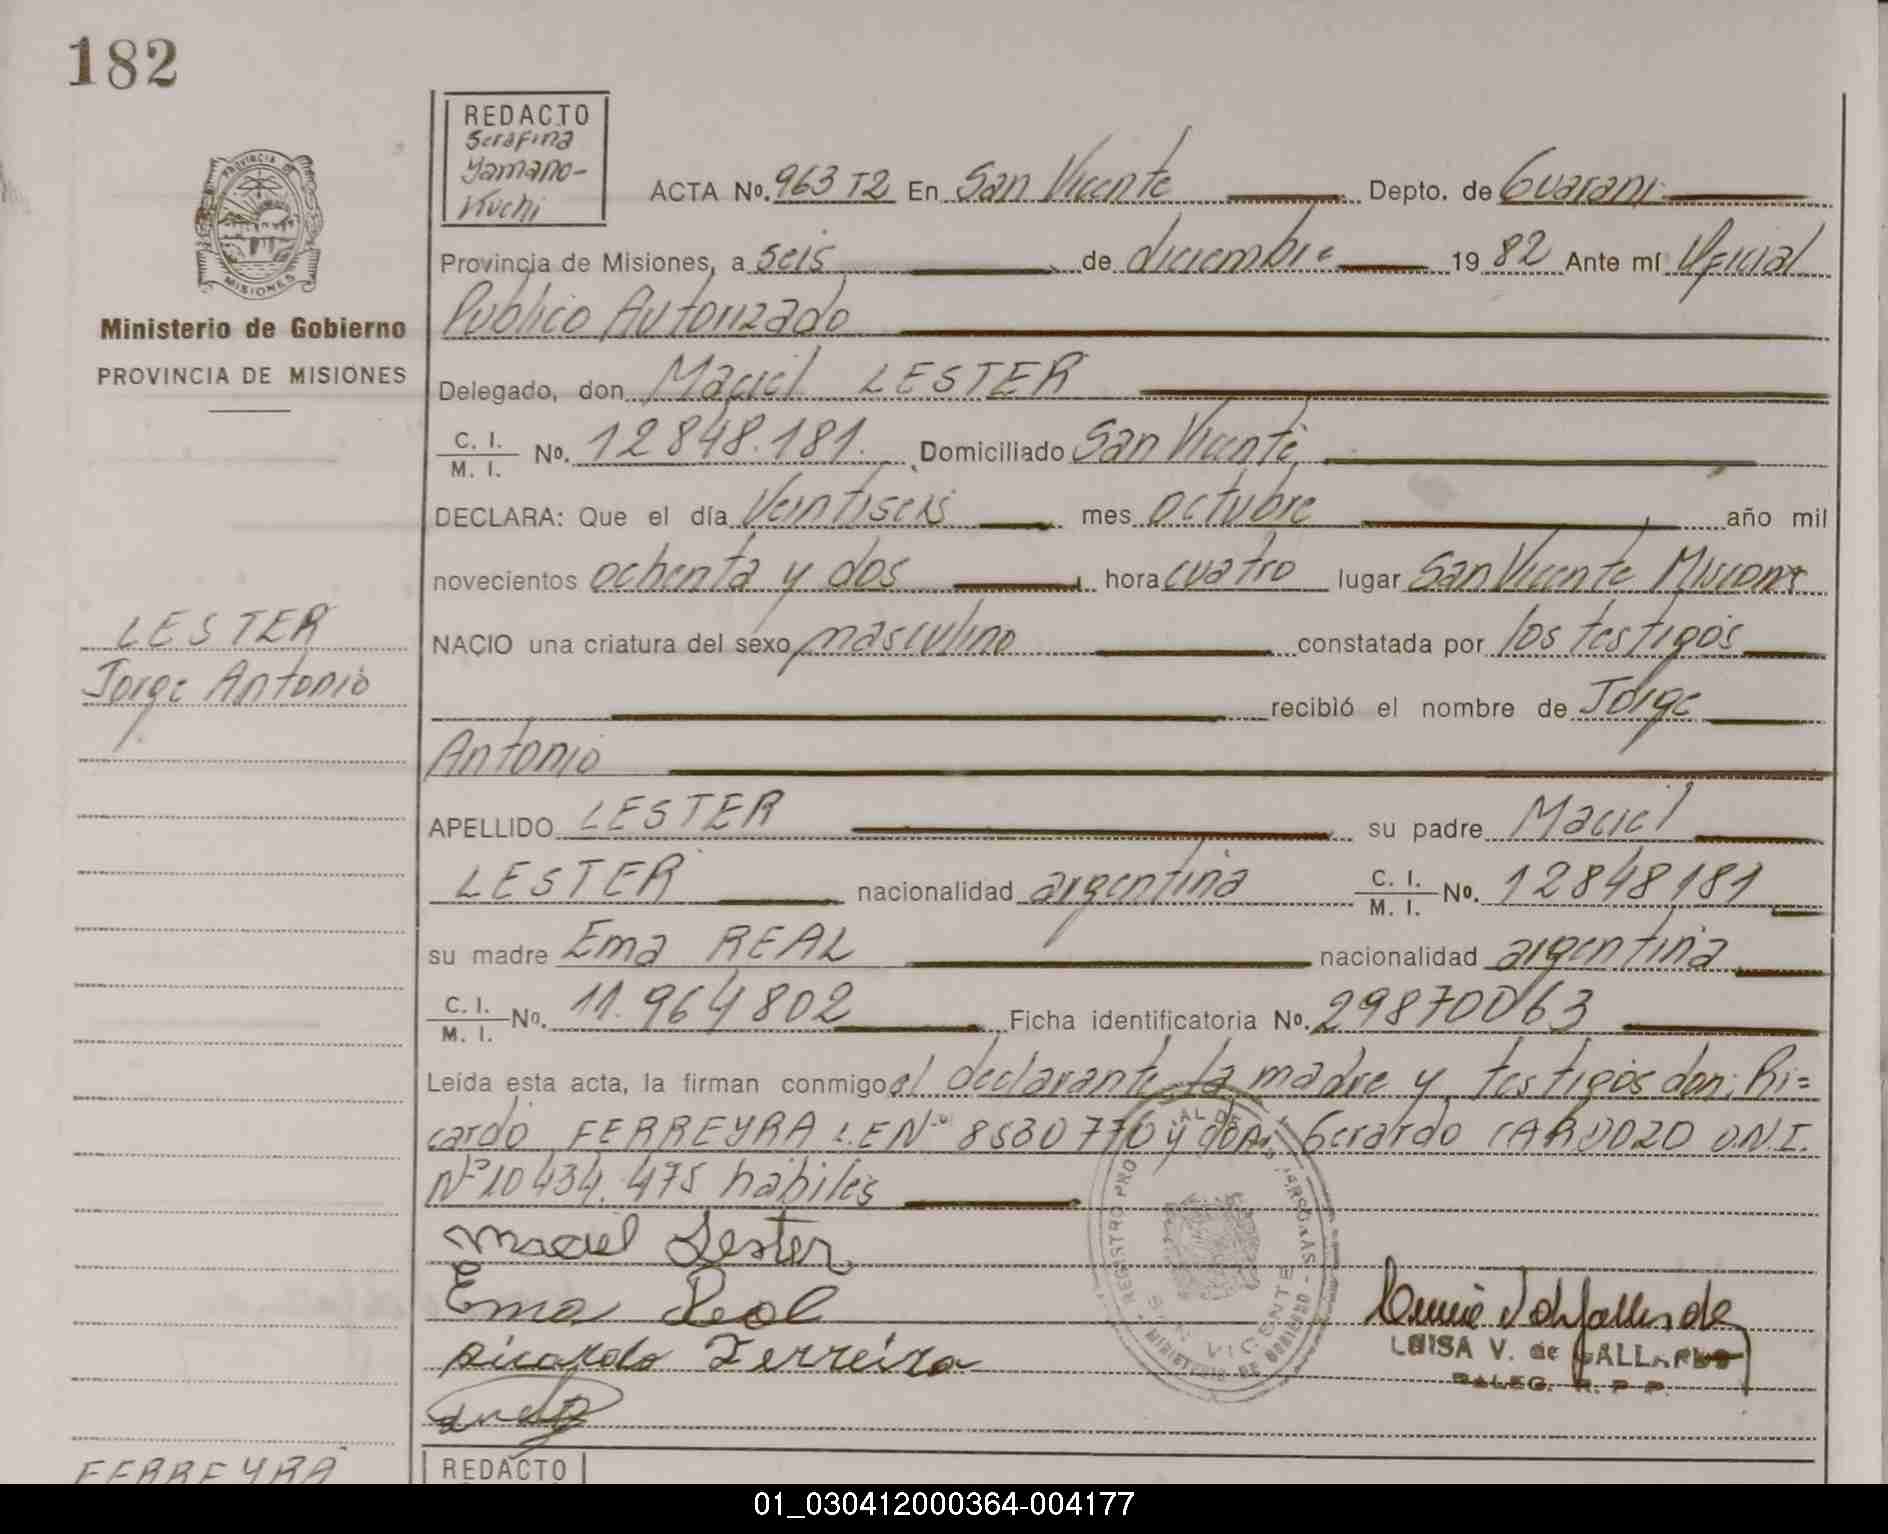 182
REDACTO
Serafina
Yamano-
Kuchi
PROVINCIA DE
MISIONES
Ministerio de Gobierno
PROVINCIA DE MISIONES
ACTA No. 963 T2 En San Vicente Depto. de Guarani
Provincia de Misiones, a seis de diciembre 19 82 Ante mí Oficial
Publico Autorizado
Delegado, don Maciel LESTER
C. I. / M. I. No. 12848.181. Domiciliado San Vicente
DECLARA: Que el día Veintiseis mes octubre año mil
novecientos ochenta y dos hora cuatro lugar San Vicente Misiones
NACIO una criatura del sexo masculino constatada por los testigos
recibió el nombre de Jorge
Antonio
LESTER
Jorge Antonio
APELLIDO LESTER su padre Maciel
LESTER nacionalidad argentina C. I. / M. I. No. 12848181
su madre Ema REAL nacionalidad argentina
C. I. / M. I. No. 11.964802 Ficha identificatoria No. 29870063
Leída esta acta, la firman conmigo el declarante la madre y testigos don: Ri=
cardo FERREYRA L.E Nº 8530770 y don: Gerardo CARDOZO D.N.I.
Nº 10434.475 habiles
Maciel Lester
Ema Real
Ricardo Ferreira
REGISTRO PRO AL DE PERSONAS
SAN VICENTE
MINISTERIO DE GOBIERNO
LUISA V. de GALLARDO
DALEG. R. P. P.
FERREYRA
REDACTO
01_030412000364-004177